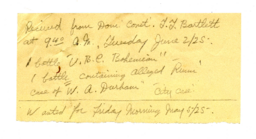 Received from Dom Const. F.F. Bartlett
at 9 40 A.M. Tuesday June 2/25.
1 bottle V.B.C. Bohemian"
1 bottle containing Alleged "Rum"
case of W. A. Durham "City case"
Wanted for Friday Morning 5/25.